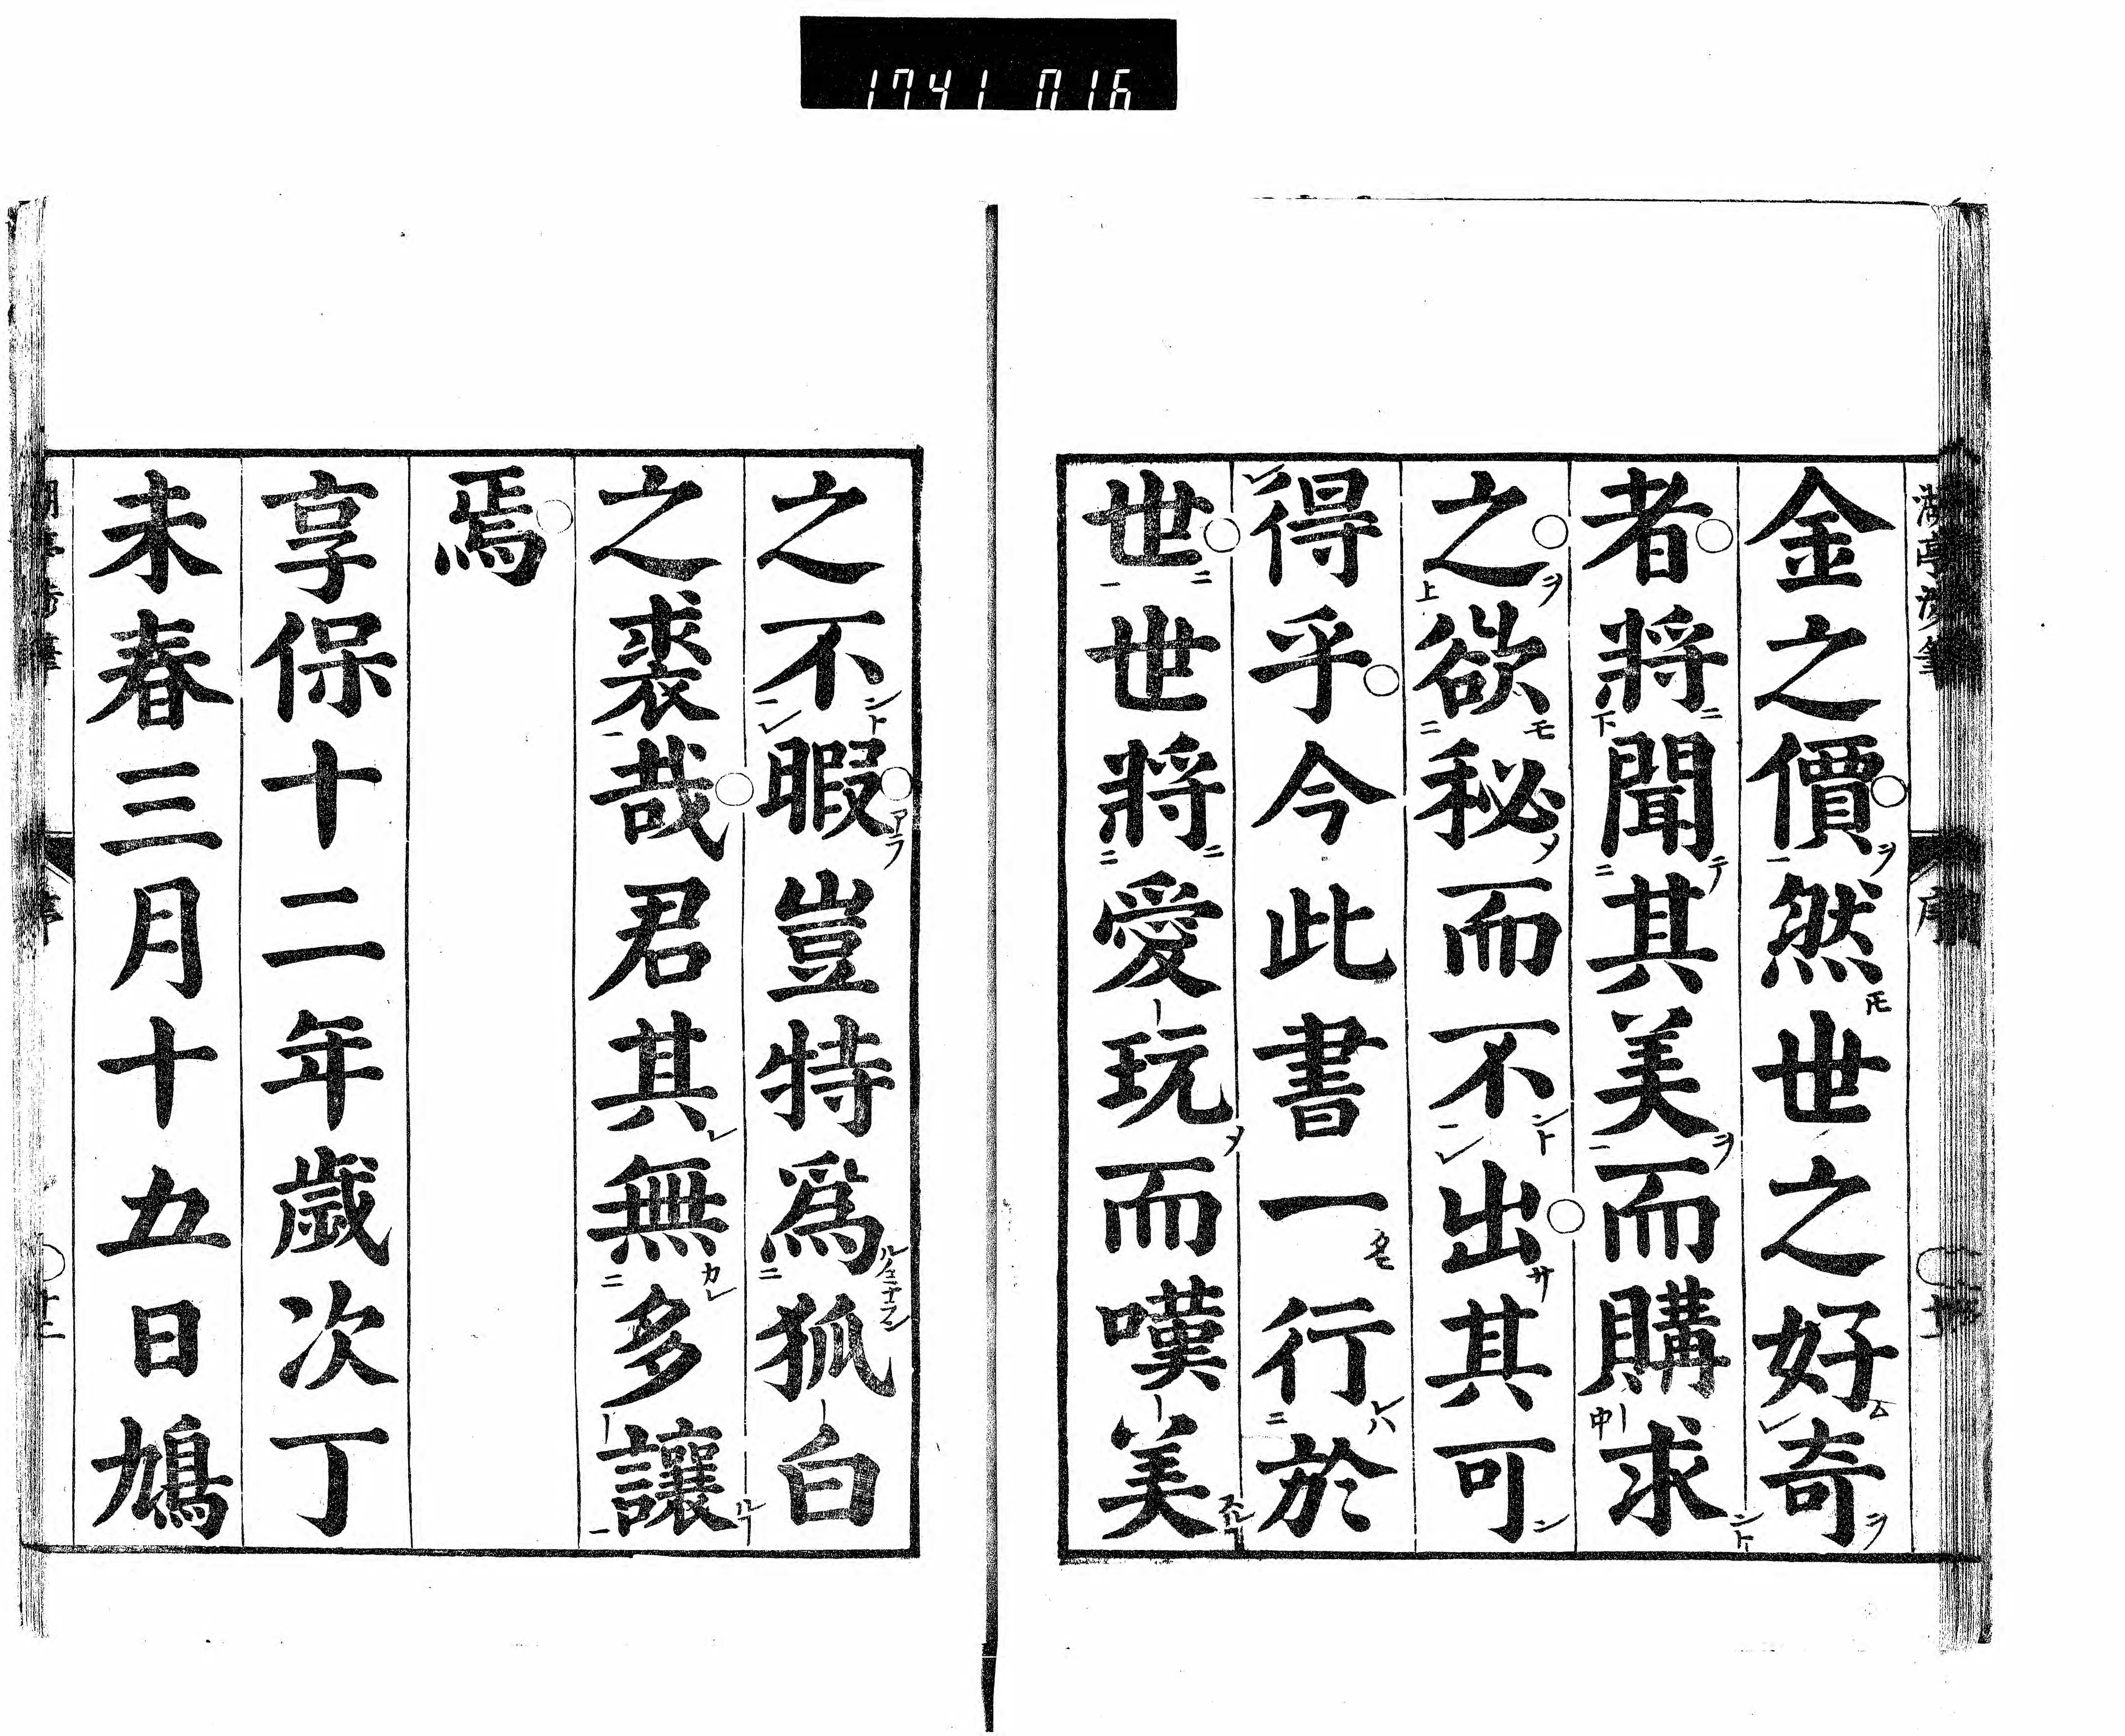 1741 016
金之價然世之好奇
者將聞其美而購求
之欲秘而不出其可
得乎今此書一行於
世世將愛玩而嘆美
之不暇豈特爲狐白
之裘哉君其無多讓
焉
享保十二年歲次丁
未春三月十五日鳩